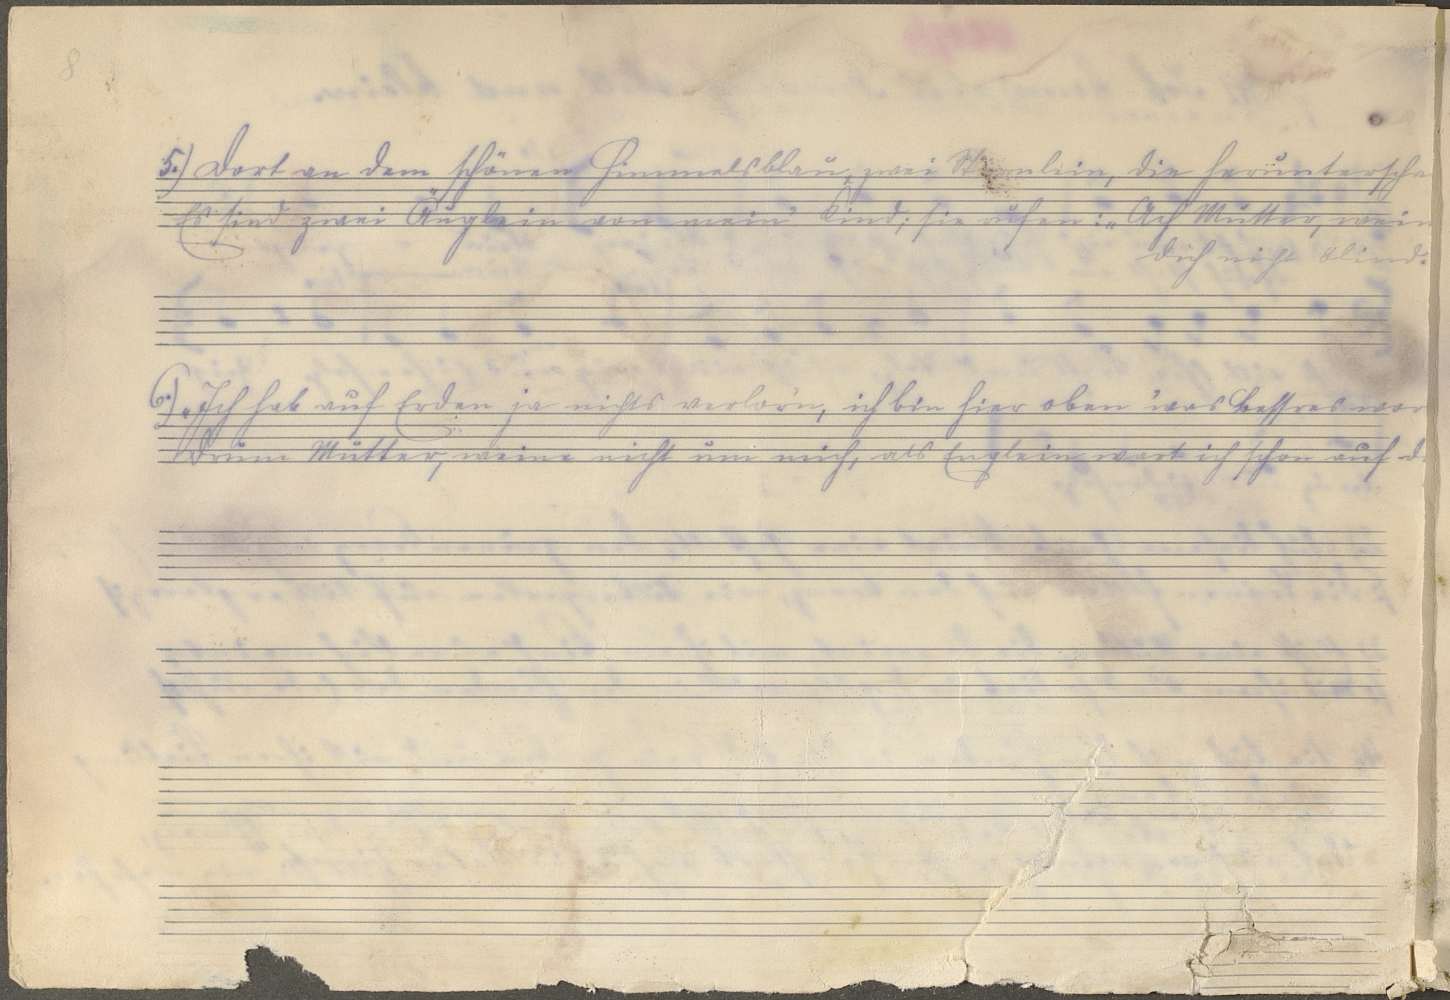 8
5.) Dort an dem schönen Himmelsblau, zwei Sternlein, die heruntersche
Es sind zwei Äuglein von mein' Kind; sie rufen: „Ach Mutter, wein
dich nicht blind.
6.) „Ich hab auf Erden ja nichts verlor'n, ich bin hier oben 'was Bessres wor
Drum Mutter, weine nicht um mich, als Englein wart ich schon auf d